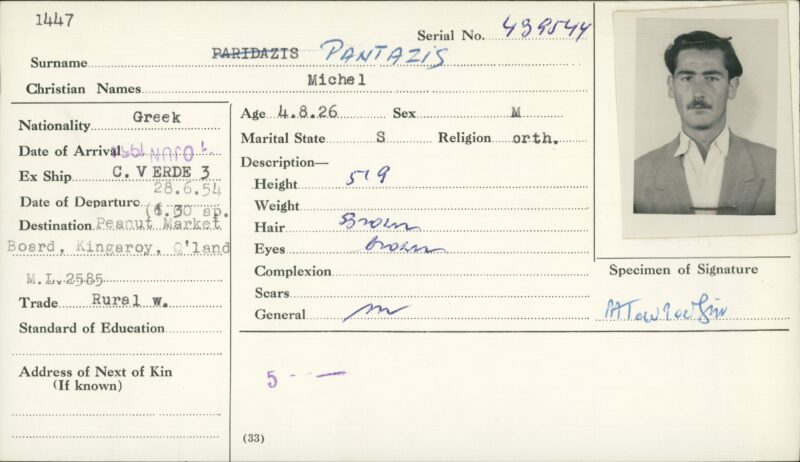 1447
Serial No. 439544
Surname PARIDAZIS PANTAZIS
Christian Names Michel
Nationality Greek
Date of Arrival
Ex Ship C. VERDE 3
Date of Departure 28.6.54
(6.30 ap.
Destination Peanut Market
Board, Kingaroy, Q'land
M.L.2585
Trade Rural w.
Standard of Education
Address of Next of Kin
(If known)
Age 4.8.26 Sex M
Marital State S Religion orth.
Description—
Height 5'9
Weight
Hair Brown
Eyes brown
Complexion
Scars
General m
5 - - —
(33)
Specimen of Signature